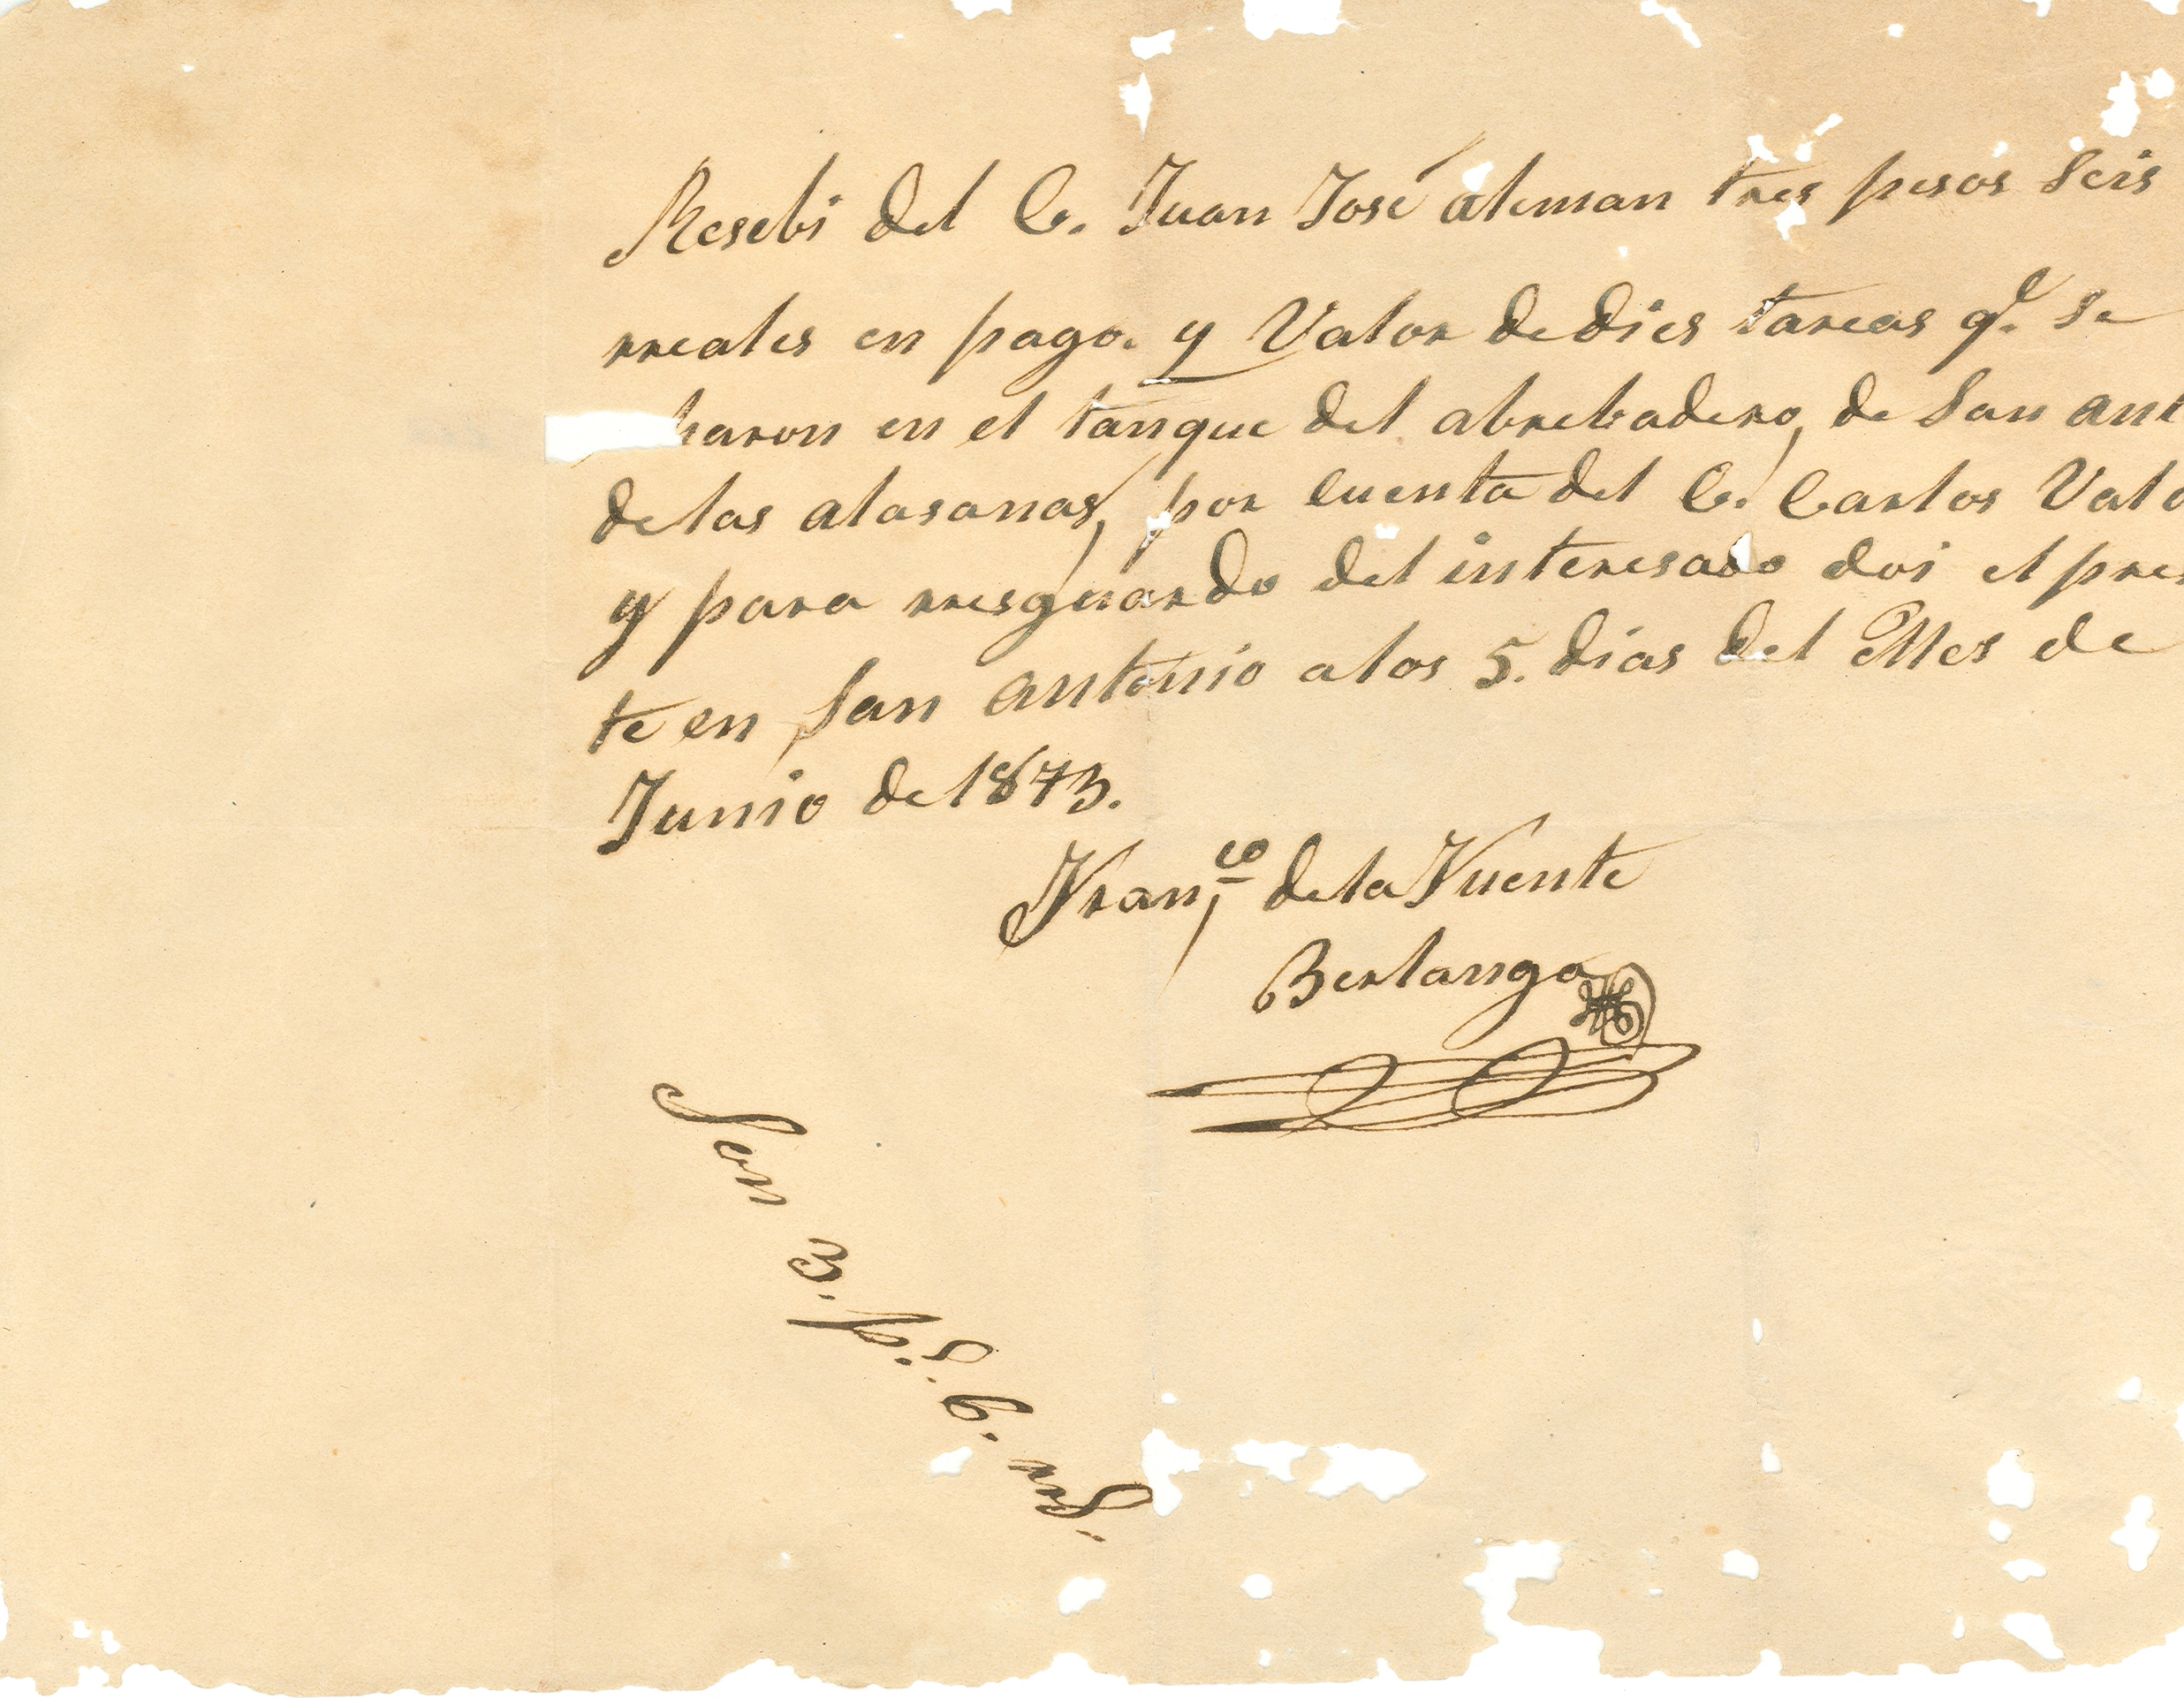 Resebi del C. Juan José aleman tres pesos seis
rreales en pago. y Valor de dies tareas q.e se
haron en el tanque del abrebadero, de San ant
de las alasanas, por cuenta del C. Carlos Valo
y para rresguardo del interesado doi el pres
te en San antonio a los 5. dias del Mes de
Junio de 1873.
Fran,co de la Fuente
Berlanga
Son 3. p.s 6. rrs.